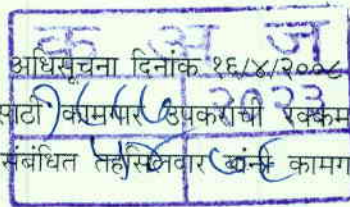 क अ ज
अधिसूचना दिनांक १६/४/२००८
साठी कामगार उपकराची रक्कम
२०२३
संबंधित तहसिलदार यांनी कामग